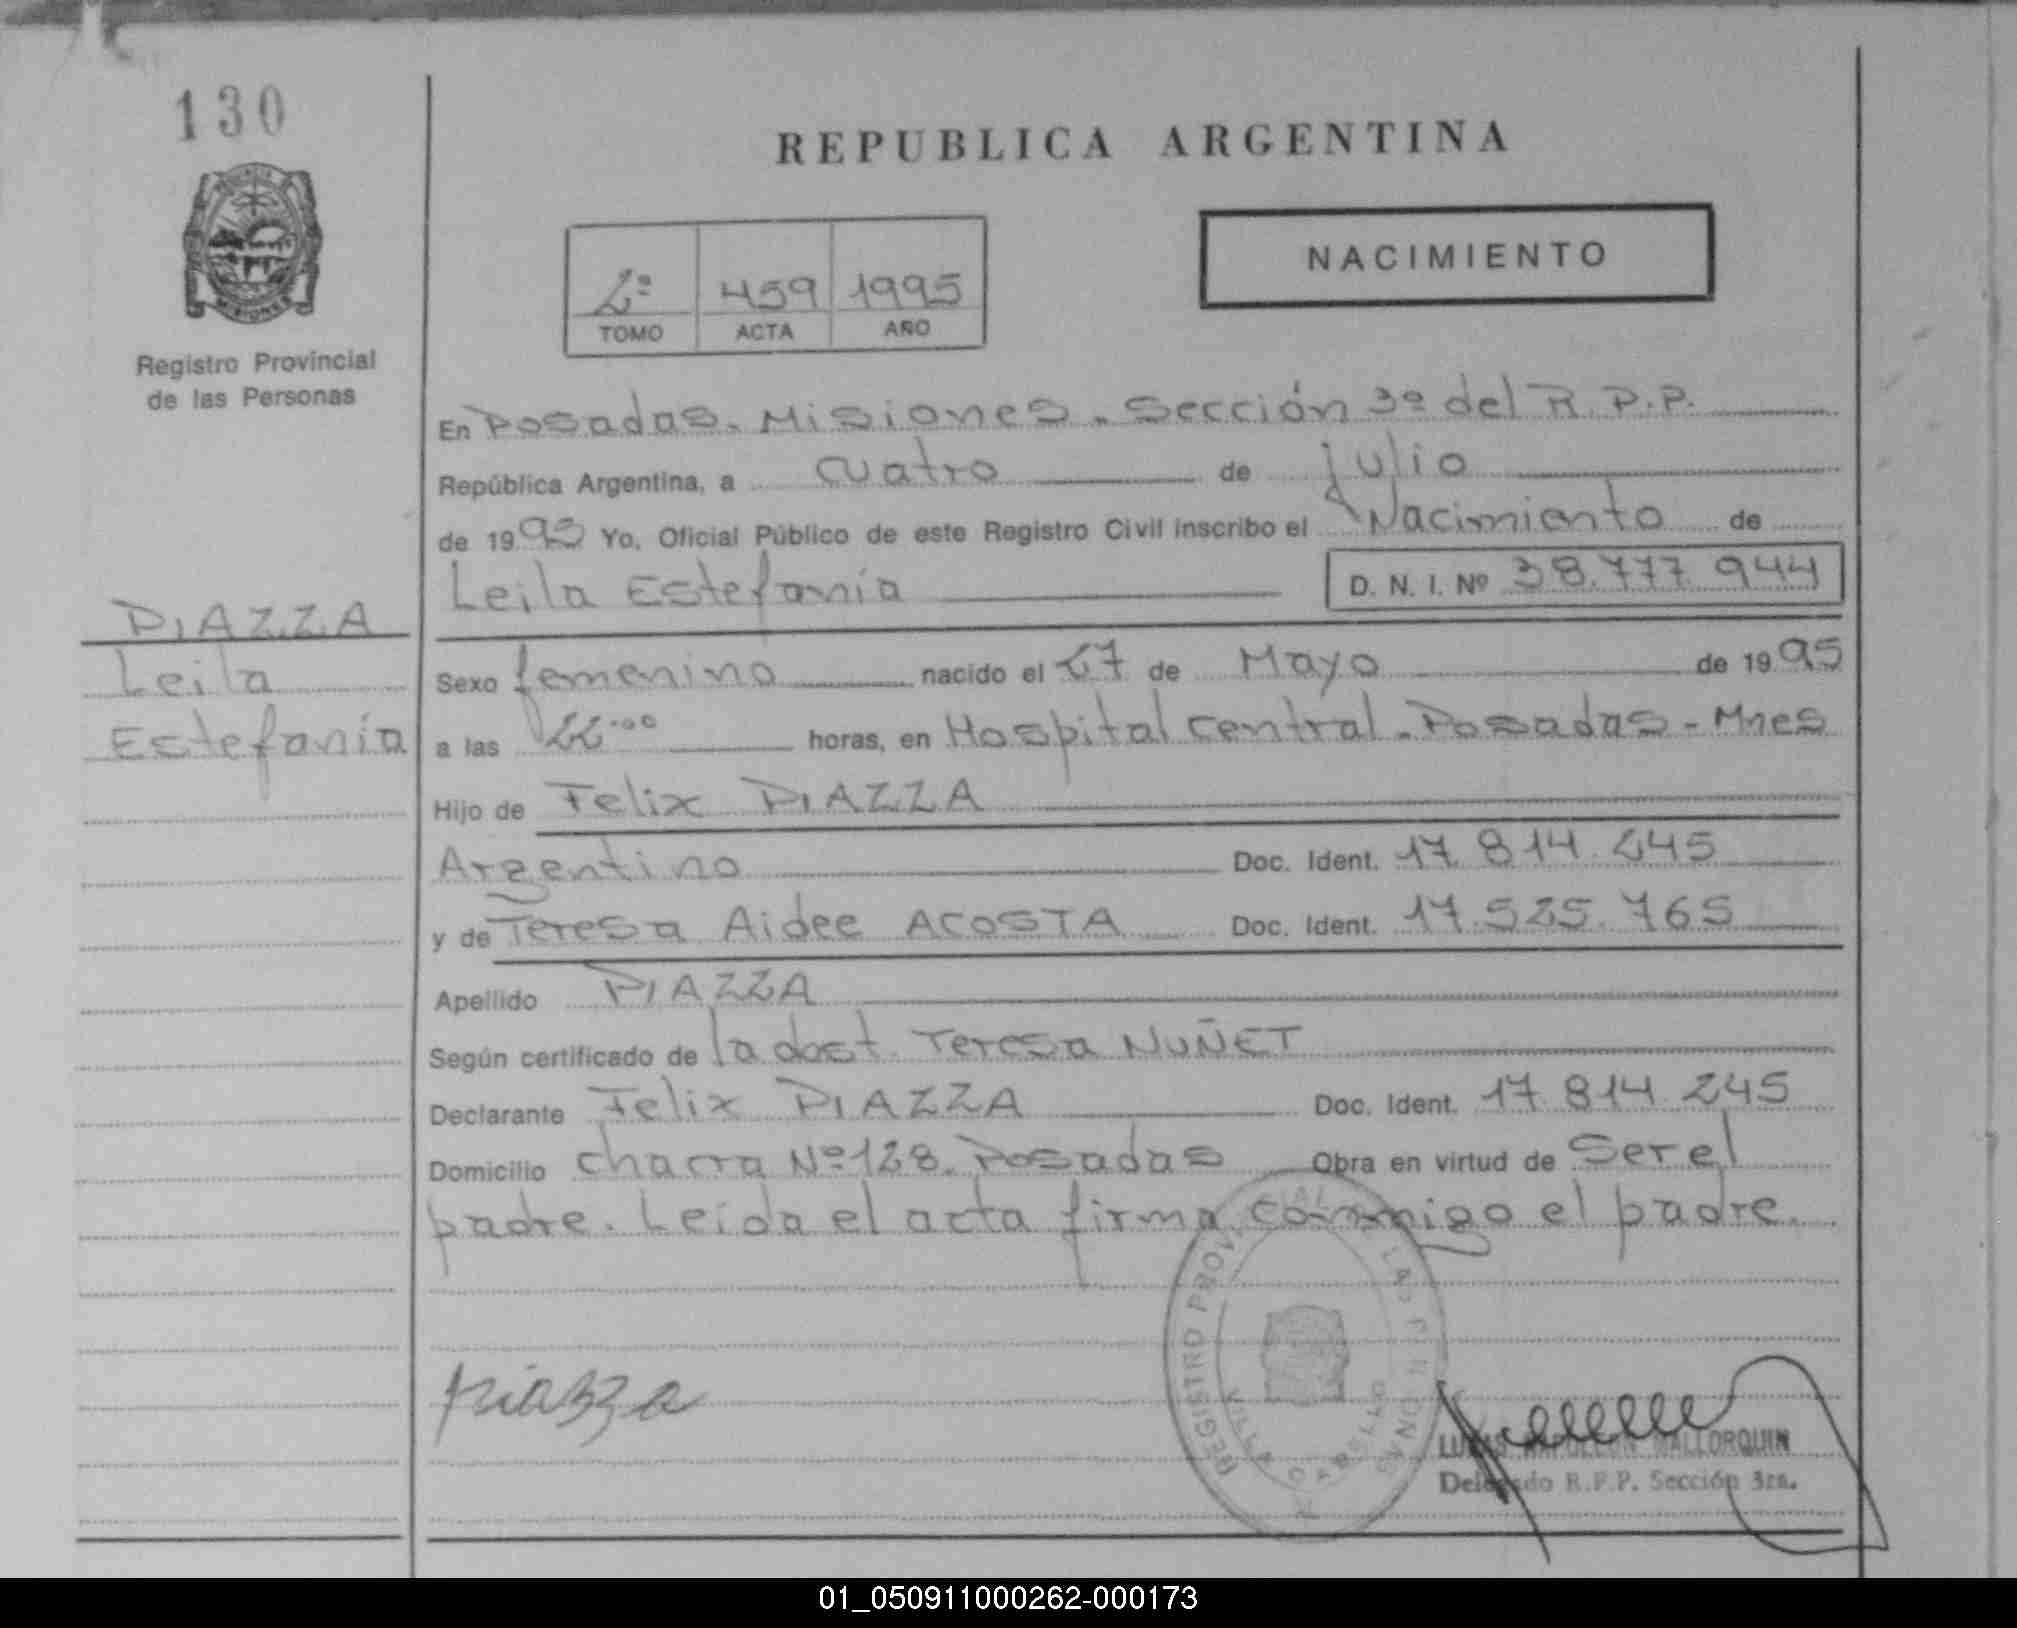 130
REPUBLICA ARGENTINA
NACIMIENTO
2º 459 1995
TOMO ACTA AÑO
MISIONES
Registro Provincial
de las Personas
En Posadas. Misiones. Sección 3º del R.P.P.
República Argentina, a cuatro de julio
de 1995 Yo, Oficial Público de este Registro Civil inscribo el Nacimiento de
Leila Estefanía D. N. I. Nº 38.777.944
PIAZZA
Leila
Estefanía
Sexo femenino nacido el 27 de Mayo de 1995
a las 22.00 horas, en Hospital Central. Posadas - Mnes
Hijo de Felix PIAZZA
Argentino Doc. Ident. 17.814.245
y de Teresa Aidee ACOSTA Doc. Ident. 17.525.765
Apellido PIAZZA
Según certificado de la dost. Teresa NUÑET
Declarante Felix PIAZZA Doc. Ident. 17.814.245
Domicilio chacra Nº 128. Posadas Obra en virtud de Ser el
padre. Leida el acta firma conmigo el padre.
REGISTRO PROVINCIAL DE LAS PERSONAS
VILLA CABELLO
Piazza
LUCAS NAPOLEON MALLORQUIN
Delegado R.P.P. Sección 3ra.
01_050911000262-000173